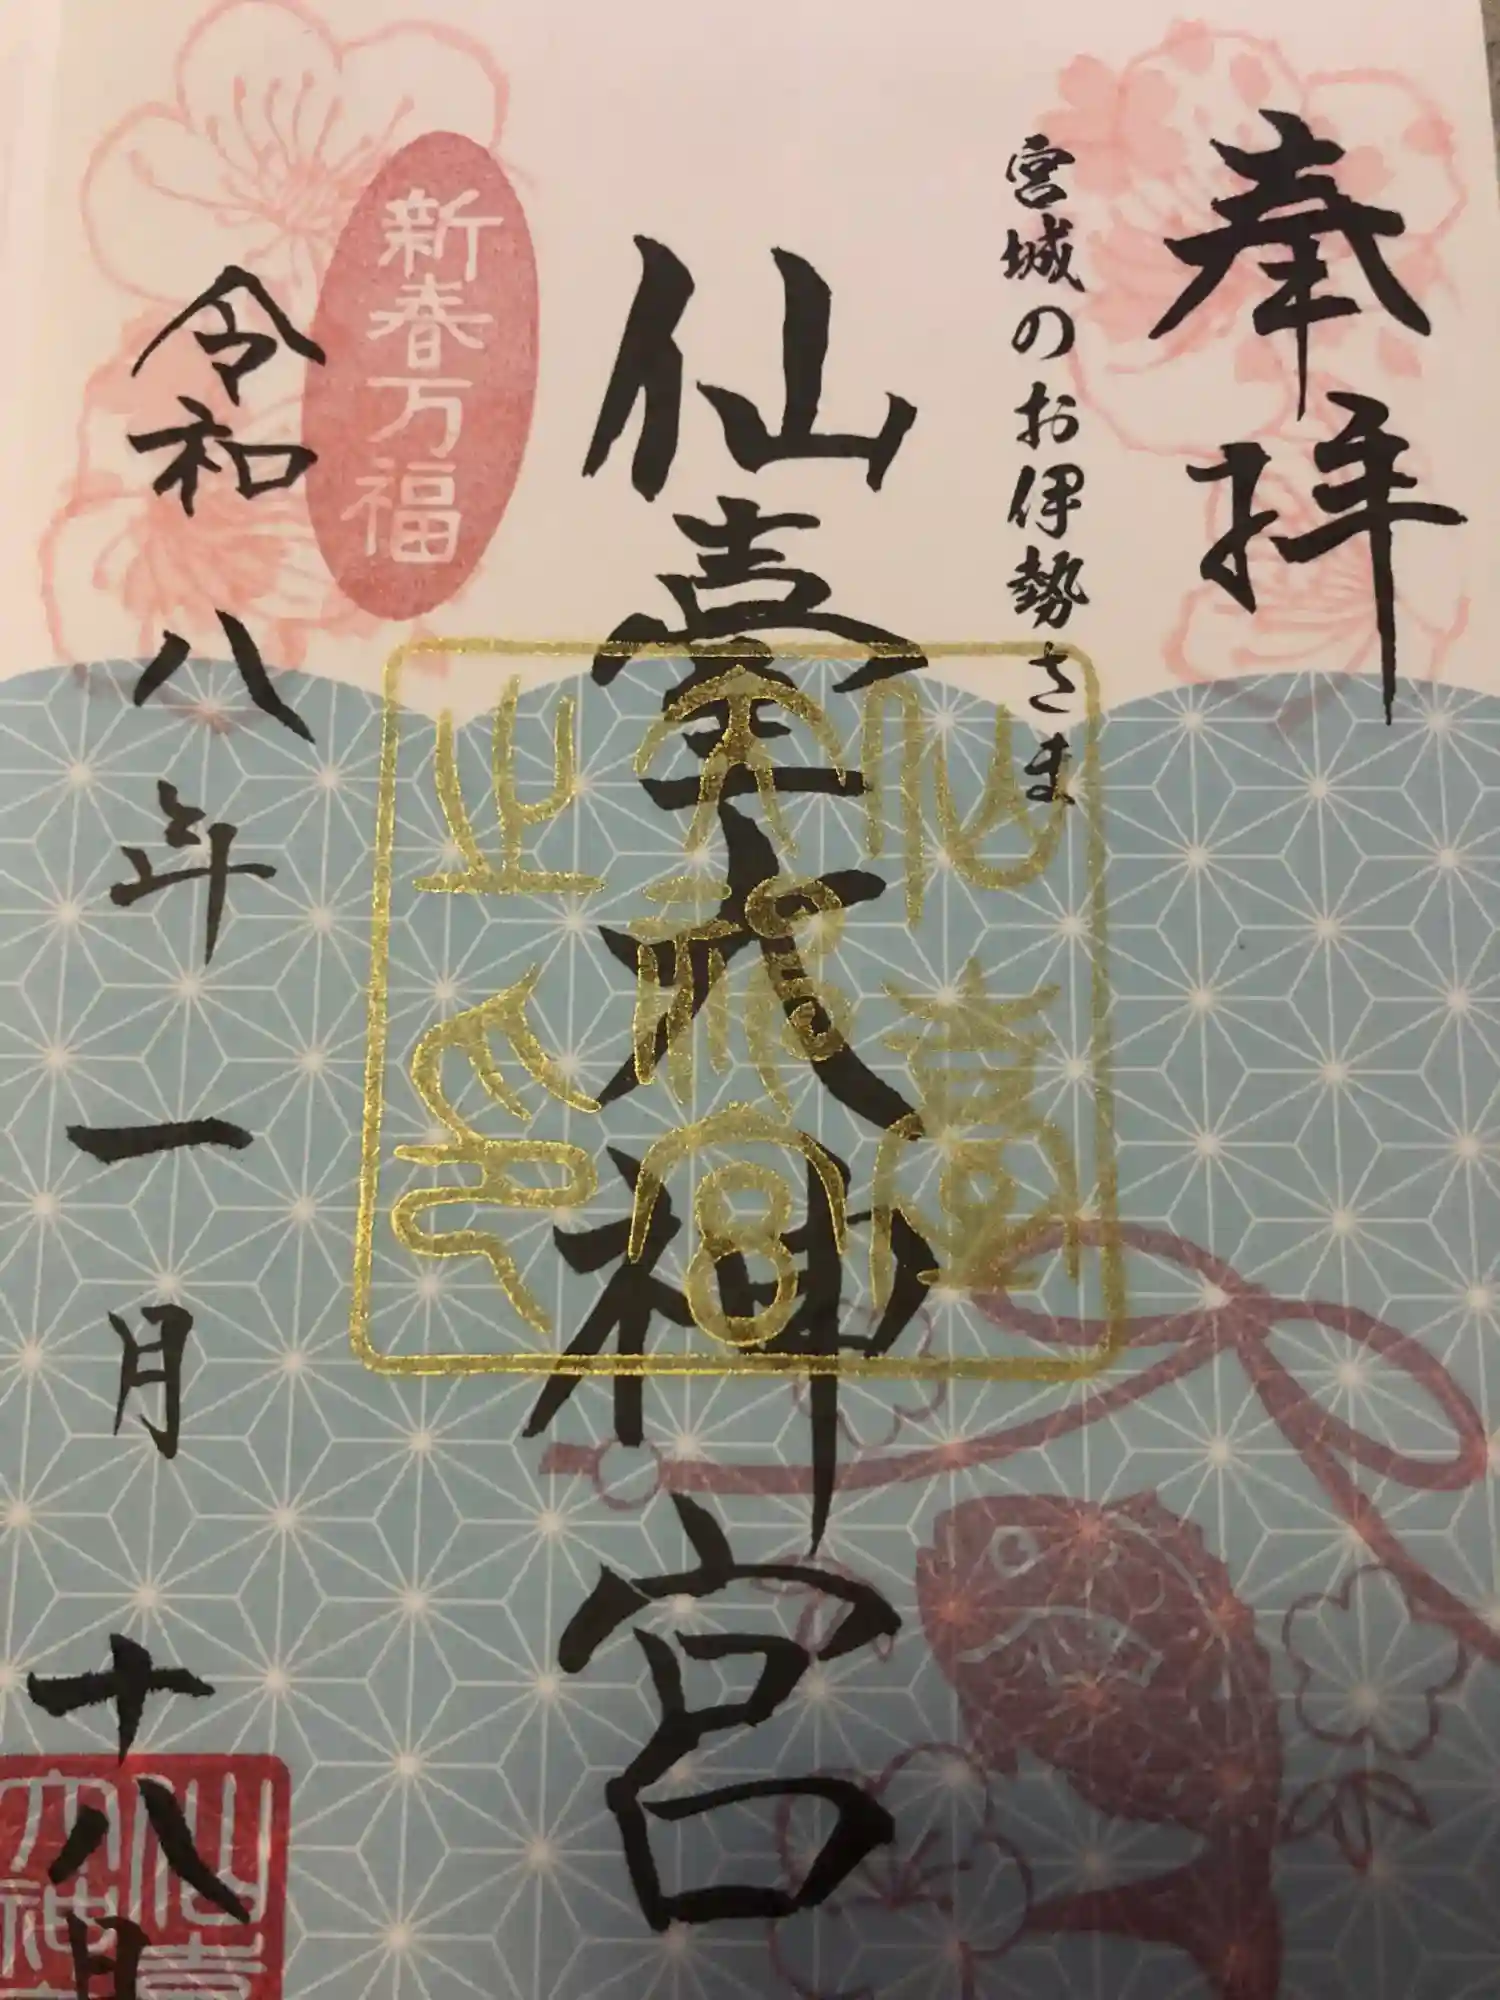 奉拝
宮城のお伊勢さま
仙臺大神宮
仙臺
大神宮
之印
新春万福
令和八年一月十八日